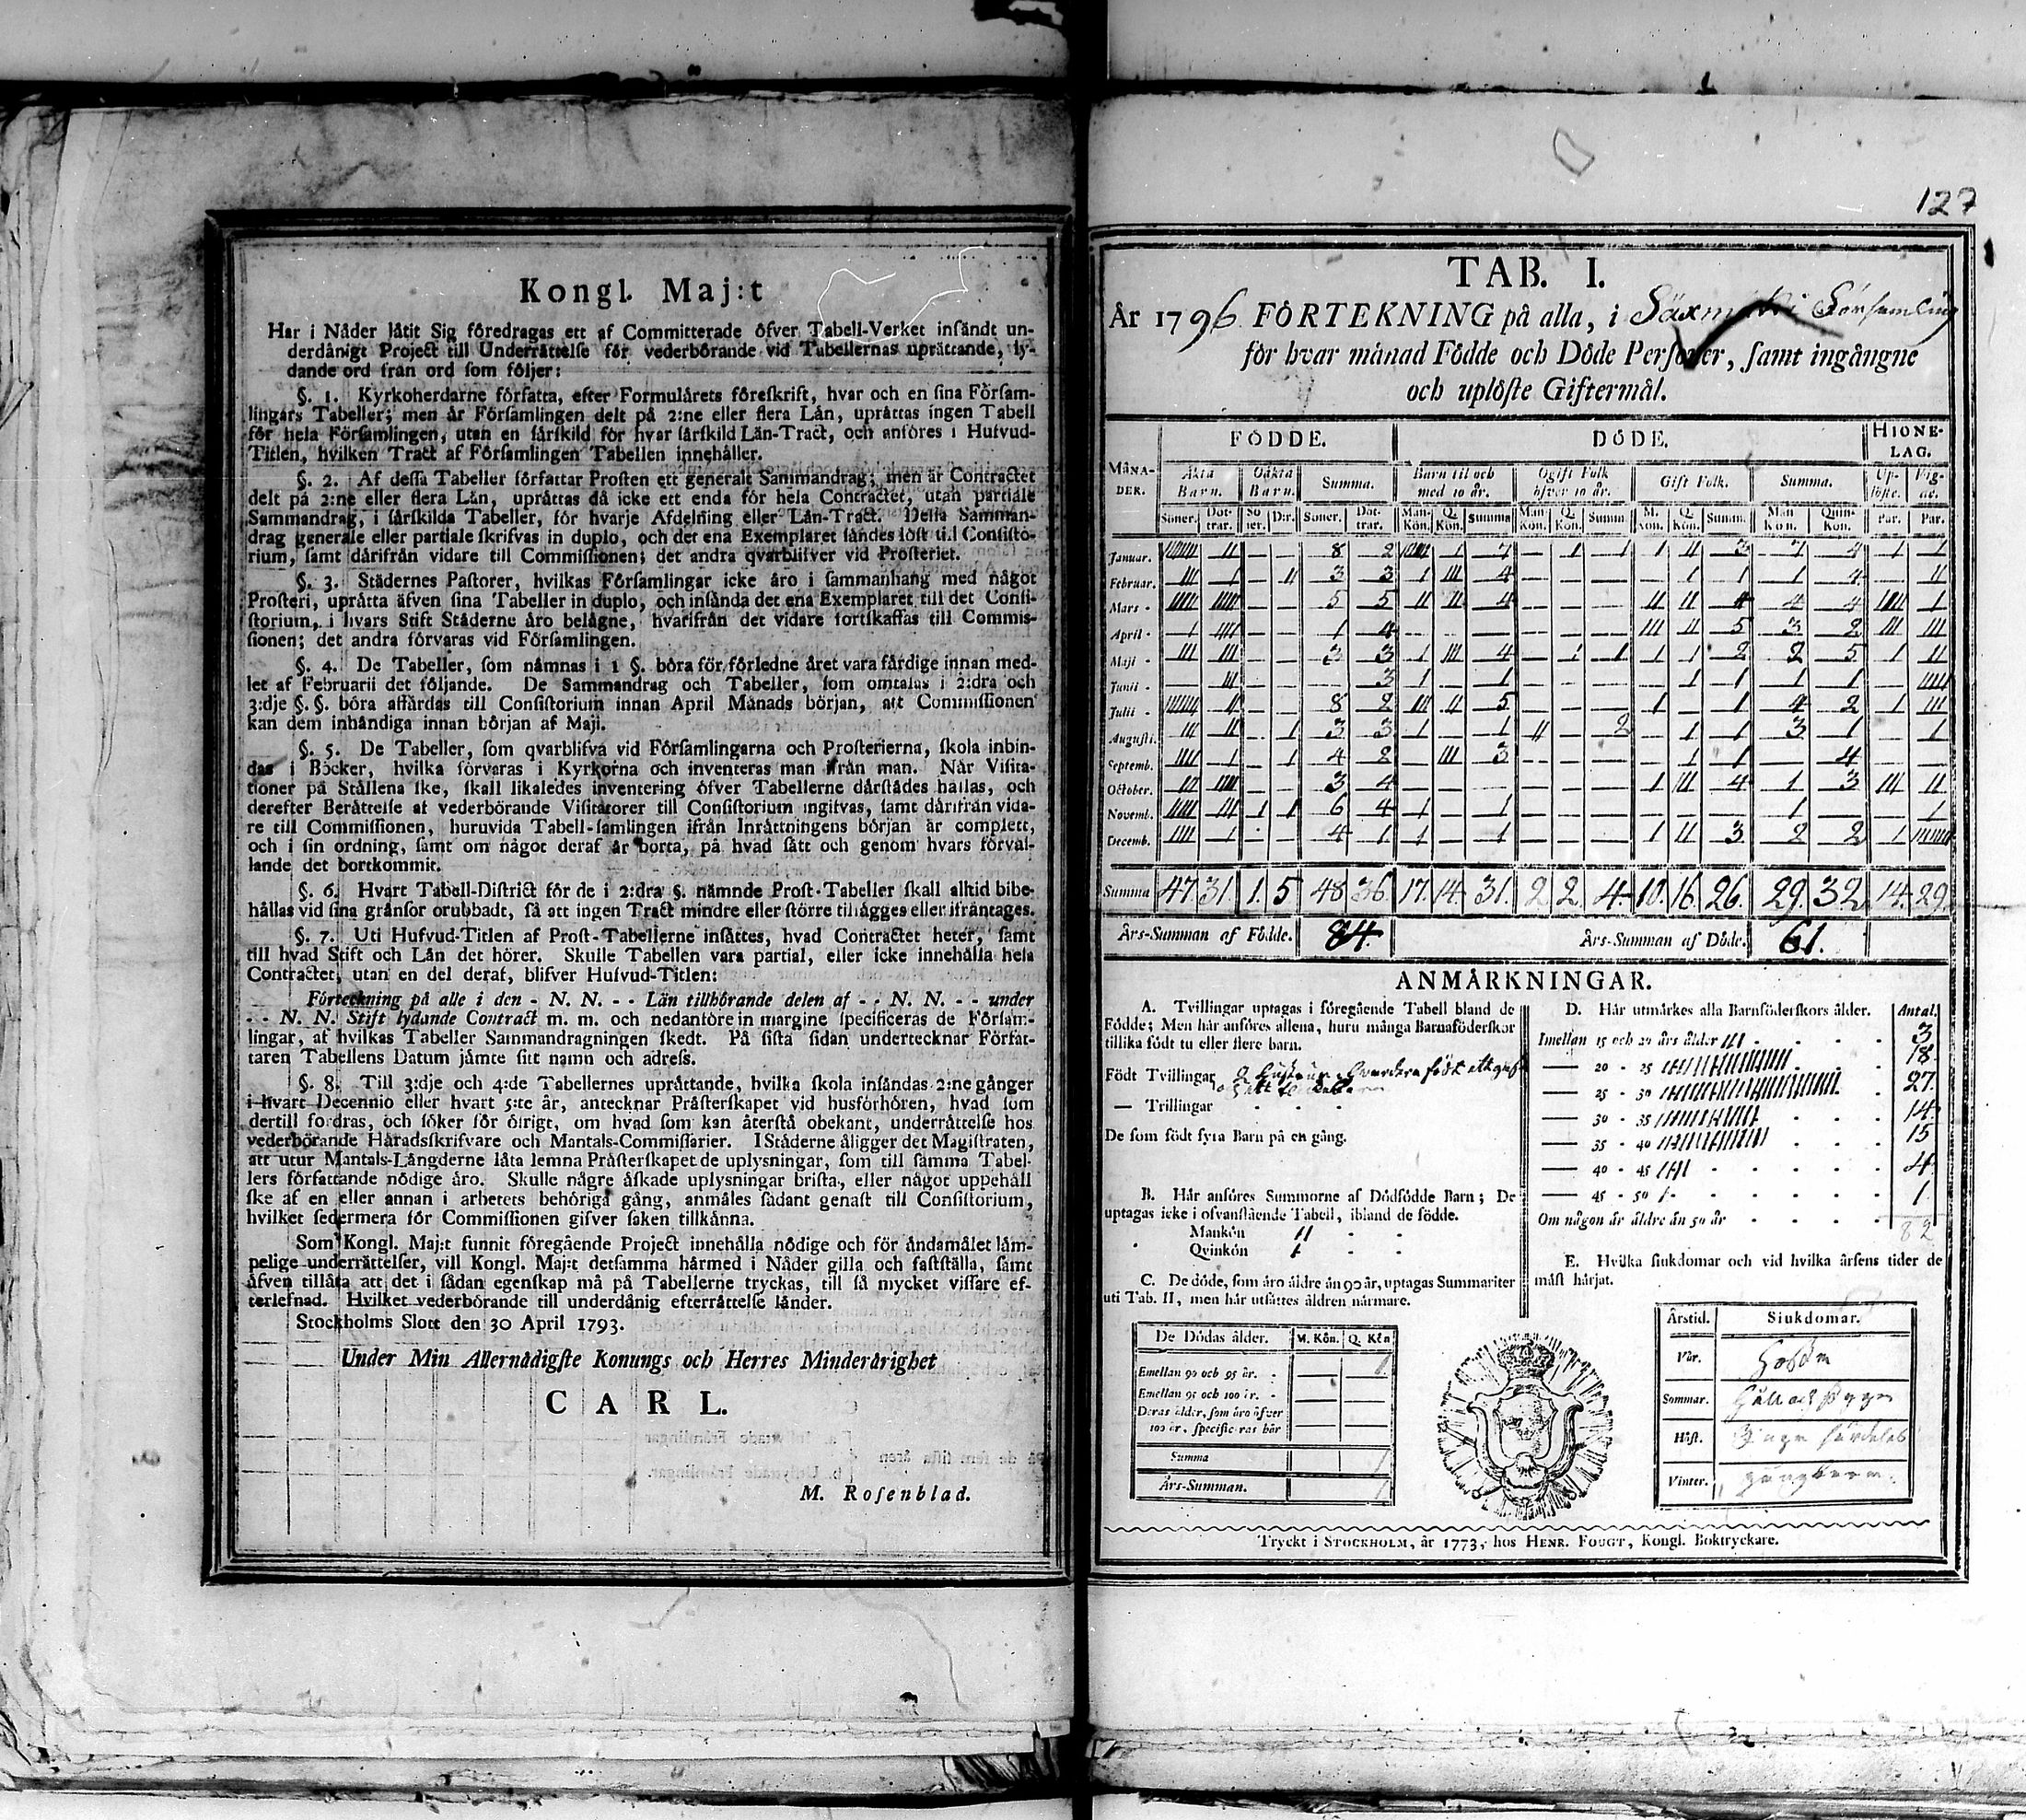 Kongl. Maj:t
Har i Nåder låtit Sig föredragas ett af Committerade öfver Tabell-Verket insändt un-
derdånigt Project till Underrättelse för vederbörande vid Tabellernas uprättande, ly-
dande ord från ord som följer:
§. 1. Kyrkoherdarne författa, efter Formulårets föreskrift, hvar och en sina Försam-
lingars Tabeller; men är Församlingen delt på 2:ne eller flera Lån, uprättas ingen Tabell
för hela Församlingen, utan en särskild för hvar särskild Län-Tract, och anföres i Hufvud-
Titlen, hvilken Tract af Församlingen Tabellen innehåller.
§. 2. Af dessa Tabeller författar Prosten ett generalt Sammandrag; men är Contractet
delt på 2:ne eller flera Lån, uprättas då icke ett enda för hela Contractet, utan partiale
Sammandrag, i särskilda Tabeller, för hvarje Afdelning eller Län-Tract. Dessa Samman-
drag generale eller partiale skrifvas in duplo, och det ena Exemplaret sändes löst till Consisto-
rium, samt därifrån vidare till Commissionen; det andra qvarblifver vid Prosteriet.
§. 3. Städernes Pastorer, hvilkas Församlingar icke äro i sammanhang med något
Prosteri, uprätta äfven sina Tabeller in duplo, och insända det ena Exemplaret till det Consi-
storium, i hvars Stift Städerne äro belägne, hvarifrån det vidare fortskaffas till Commis-
sionen; det andra förvaras vid Församlingen.
§. 4. De Tabeller, som nämnas i 1 §. böra för förledne året vara färdige innan med-
let af Februarii det följande. De Sammandrag och Tabeller, som omtalas i 2:dra och
3:dje §. §. böra affärdas till Consistorium innan April Månads början, att Commissionen
kan dem inhändiga innan början af Maji.
§. 5. De Tabeller, som qvarblifva vid Församlingarna och Prosterierna, skola inbin-
das i Böcker, hvilka förvaras i Kyrkorna och inventeras man ifrån man. När Visita-
tioner på Ställena ske, skall likaledes inventering öfver Tabellerne därstädes hållas, och
derefter Berättelse af vederbörande Visitatorer till Consistorium ingifvas, samt därifrån vida-
re till Commissionen, huruvida Tabell-samlingen ifrån Inrättningens början är complett,
och i sin ordning, samt om något deraf är borta, på hvad sätt och genom hvars förval-
lande det bortkommit.
§. 6. Hvart Tabell-District för de i 2:dra §. nämnde Prost-Tabeller skall alltid bibe-
hållas vid sina gränsor orubbadt, så att ingen Tract mindre eller större tillägges eller ifråntages.
§. 7. Uti Hufvud-Titlen af Prost-Tabellerne insättes, hvad Contractet heter, samt
till hvad Stift och Län det hörer. Skulle Tabellen vara partial, eller icke innehålla hela
Contractet, utan en del deraf, blifver Hufvud-Titlen:
Förteckning på alle i den - N. N. - - Län tillhörande delen af - - N. N. - - under
- - N. N. Stift lydande Contract m. m. och nedanföre in margine specificeras de Försam-
lingar, af hvilkas Tabeller Sammandragningen skedt. På sista sidan undertecknar Författ-
taren Tabellens Datum jämte sitt namn och adress.
§. 8. Till 3:dje och 4:de Tabellernes uprättande, hvilka skola insändas 2:ne gånger
i hvart Decennio eller hvart 5:te år, antecknar Prästerskapet vid husförhören, hvad som
dertill fordras, och söker för öfrigt, om hvad som kan återstå obekant, underrättelse hos
vederbörande Häradsskrifvare och Mantals-Commissarier. I Städerne åligger det Magistraten,
att utur Mantals-Längderne låta lemna Prästerskapet de uplysningar, som till samma Tabel-
lers författande nödige äro. Skulle någre åskade uplysningar brista, eller något uppehåll
ske af en eller annan i arbetets behöriga gång, anmäles sådant genast till Consistorium,
hvilket sedermera för Commissionen gifver saken tillkänna.
Som Kongl. Maj:t funnit föregående Project innehålla nödige och för ändamålet läm-
pelige underrättelser, vill Kongl. Maj:t detsamma härmed i Nåder gilla och fastställa, samt
äfven tillåta att det i sådan egenskap må på Tabellerne tryckas, till så mycket vissare ef-
terlefnad. Hvilket vederbörande till underdånig efterrättelse länder.
Stockholms Slott den 30 April 1793.
Under Min Allernådigste Konungs och Herres Minderårighet
CARL.
M. Rosenblad.
127
TAB. I.
År 1796 FÖRTEKNING på alla, i Församling
för hvar månad Födde och Döde Personer, samt ingångne
och uplöste Giftermål.
MÅNA-DER. FÖDDE. DÖDE. HIONE-LAG.
Äkta Barn. Oäkta Barn. Summa. Barn til och med 10 år. Ogift Folk öfver 10 år. Gift Folk. Summa. Up-löste. Vig-de.
Söner. Döt-trar. Sö-ner. D:r. Söner. Döt-trar. Man-Kön. Q. Kön. Summa Man-Kön. Q. Kön. Summ M. Kön. Q. Kön. Summ. Man Kön. Quin-Kön. Par. Par.
Januar. 8 2 1 7 — 1 1 1 II 3 7 4 1 1
Februar. III 1 — II 3 3 1 III 4 — — — — 1 1 1 4 — II
Mars - — — 5 5 II II 4 — — — II II 4 4 4 1
April - 1 IIII — — 1 4 — — — — — — III II 5 3 2 III III
Maji - III III — — 3 3 1 III 4 — 1 1 1 1 2 2 5 1 II
Junii - III 3 1 — 1 — — — — 1 1 1 1 — IIII
Julii - II — — 8 2 III II 5 — — — 1 — 1 4 2 1 III
Augusti. III II — 1 3 3 1 — 1 II — 2 — 1 1 3 1 — 1
Septemb. IIII 1 — 1 4 2 — III 3 — — — — 1 1 4
October. III IIII — — 3 4 — — — — — — 1 III 4 1 3 III II
Novemb. III 1 1 6 4 1 — 1 — — — — — — 1 — — 1
Decemb. IIII 1 4 1 1 — 1 — — — 1 II 3 2 2 1
Summa 47. 31. 1. 5 48 36. 17. 14. 31. 2 2. 4. 10. 16. 26. 29. 32. 14. 29.
Års-Summan af Födde. 84. Års-Summan af Döde. 61.
ANMÄRKNINGAR.
A. Tvillingar uptagas i föregående Tabell bland de
Födde; Men här anföres allena, huru många Barnaföderskor
tillika födt tu eller flere barn.
Födt Tvillingar 2
— Trillingar - - -
De som födt fyra Barn på en gång.
B. Här anföres Summorne af Dödfödde Barn; De
uptagas icke i ofvanstående Tabell, ibland de födde.
Mankön II - -
Qvinkön 1 - -
C. De döde, som äro äldre än 90 år, uptagas Summariter
uti Tab. II, men här utsättes åldren närmare.
De Dödas ålder. M. Kön. Q. Kön
Emellan 90 och 95 år. -
Emellan 95 och 100 år. -
Deras ålder, som äro öfver
100 år, specificeras här
Summa
Års-Summan.
D. Här utmärkes alla Barnföderskors ålder. Antal.
Emellan 15 och 20 års ålder III 3
— 20 - 25 18
— 25 - 30 27.
— 30 - 35 14
— 35 - 40 15
— 40 - 45 IIII 4
— 45 - 50 1 1
Om någon är äldre än 50 år
82
E. Hvilka siukdomar och vid hvilka årsens tider de
mäst härjat.
Årstid. Siukdomar.
Vår.
Sommar.
Höst.
Vinter.
Tryckt i STOCKHOLM, år 1773, hos HENR. FOUGT, Kongl. Boktryckare.